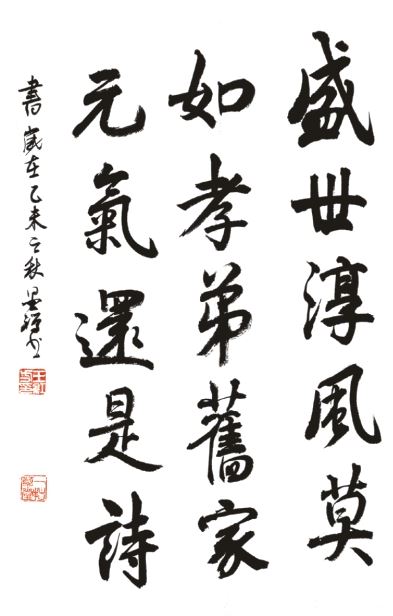 盛世淳風莫
如孝弟舊家
元氣還是詩
書 歲在乙未之秋